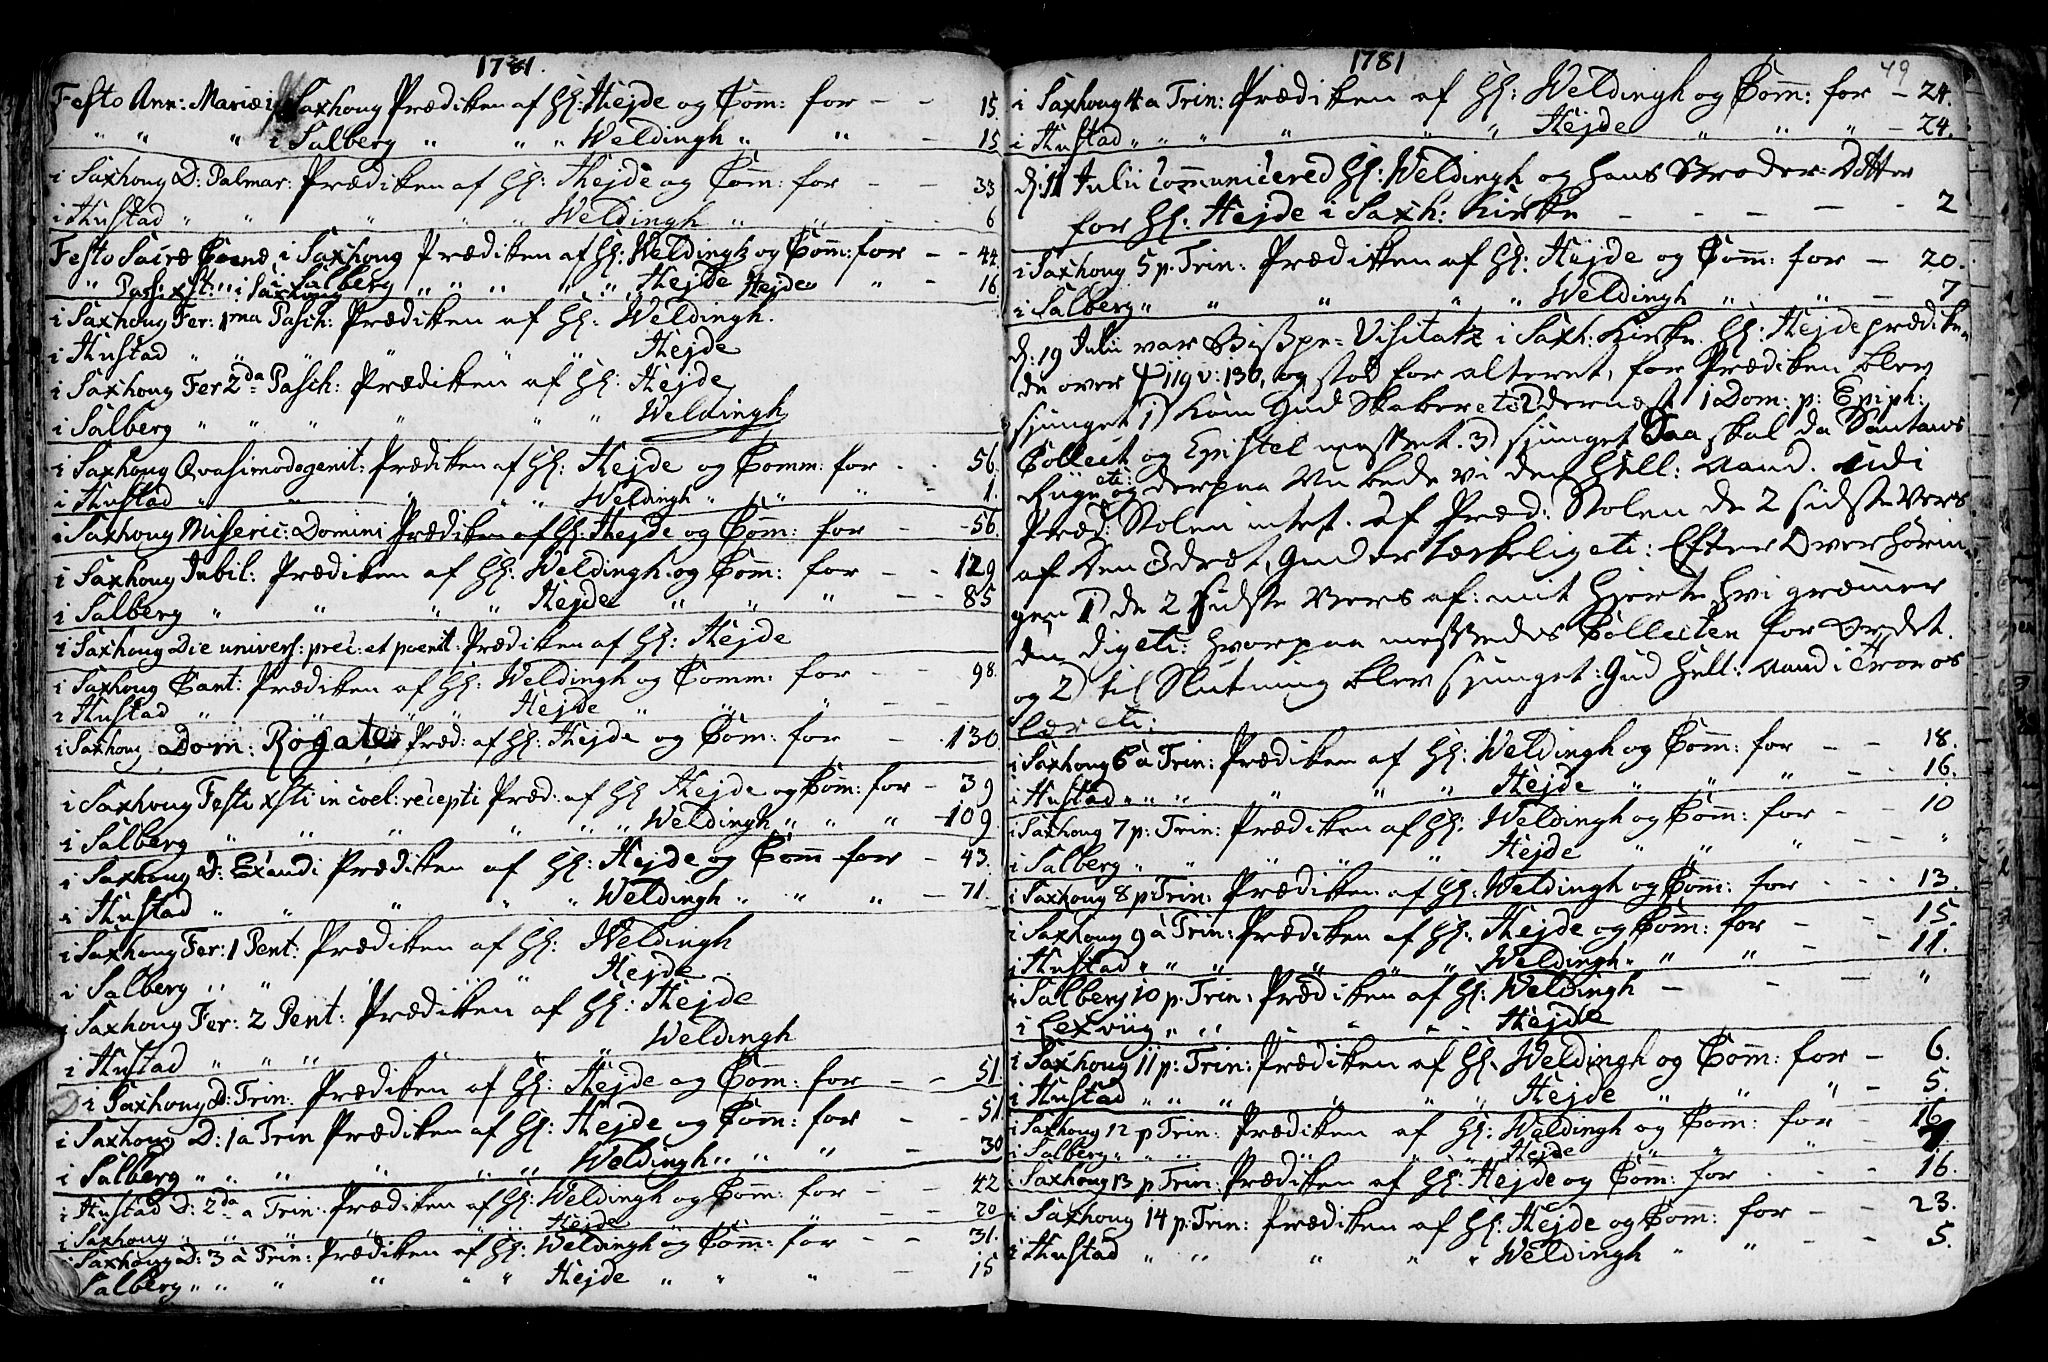 1781.
Festo Ann: Mariæ i Saxhoug Prædiken af Hl: Hejde og Com̄: for - - 15.
" " " i Salberg " " " Weldingh " " - 15
i Saxhoug D: Palmar: Prædiken af Hl: Hejde og Com̄: for - - 33
i Hustad " " " " " Weldingh " " - - 6
Festo Sacræ Coenæ, i Saxhoug Prædiken af Hl: Weldingh og Com̄: for - - 44
" Pass: Xsti: " i Salberg " " " " " Hejde " - 16
i Saxhoug Hejde
i Saxhoug Fer: 1ma Pasch: Prædiken af Hl: Weldingh.
i Hustad " " " " " Hejde
i Saxhoug Fer 2da Pasch: Prædiken af Hl: Hejde
i Salberg " " " " " " Weldingh
i Saxhoug Qvasimodogenit: Prædiken af Hl: Hejde og Comm: for - - 56.
i Hustad " " " " " Weldingh " " " - 1.
i Saxhoug Miseric: Domini Prædiken af Hl: Hejde og Com̄: for - - 56.
i Saxhoug Jubil: Prædiken af Hl: Weldingh og Com̄: for - - 129
i Salberg " " " " Hejde " " " - - 85
i Saxhoug Die univers: prec: et poenit: Prædiken af Hl: Hejde
i Saxhoug Cant: Prædiken af Hl: Weldingh og Comm: for - - 98.
i Hustad " " " " Hejde " " " - -
i Saxhoug Dom: Rogate Præd: af Hl: Hejde og Com̄: for - - 130
i Saxhoug Festi Xsti in coel: recepti Præd: af Hl Hejde og Com̄: for - 39
i Salberg " " " " " " Weldingh " " " - 109.
i Saxhoug D: Exaudi Prædiken af Hl: Hejde og Com̄ for - 43.
i Hustad " " " " " Weldingh " " " - 71.
i Saxhoug Fer: 1 Pent: Prædiken af Hl: Weldingh
i Salberg " " " " " Hejde
i Saxhoug Fer: 2 Pent: Prædiken af Hl: Hejde
i Hustad " " " " Weldingh
i Saxhoug D: Trin: Prædiken af Hl: Hejde og Com̄: for - - 51
i Saxhoug D: 1 a Trin Prædiken af Hl: Hejde og Com̄: for - - 51
i Salberg " " " " " " Weldingh " " " - 30
i Hustad D: 2da a Trin: Prædiken af Hl: Weldingh og Com̄: for - - 42
i Saxhoug " " " " " " Hejde " " - - 20
i Saxhoug D: 3 à Trin: Prædiken af Hl: Weldingh og Com̄: for - - 31.
Salberg " " " " " " Hejde " " " - 15
1781
49
i Saxhoug 4 a Trin: Prædiken af Hl: Weldingh og Com̄: for - 24.
i Hustad " " " " " " Hejde " " " - 24.
d: 11 Julii Communicered Hl: Weldingh og hans Broder: Dotter
for Hl: Hejde i Saxh: Kirke - - - - - 2
i Saxhoug 5 p. Trin: Prædiken af Hl: Hejde og Com̄: for - 20.
i Salberg " " " " " Weldingh " " - 7
d: 19 Julii var Bispe-Visitatz i Saxh: Kirke. Hl: Hejde prædike-
de over ψ 119 v: 130, og stod for alteret, for Prædiken blev
sjunget 1) Kom Gud Skaber etc 2 dernæst 1 Dom: p: Epiph:
Collect og Epistel messet. 3) sjunget Saa skal da Santans
Riige etc: og derpaa Nu bede vi den Hell: Aand. Udi
Præd: Stolen intet. Af Præd: Stolen de 2 sidste Vers
af Den Idræt, Gud er tækkelig etc: Efter Overhørin-
gen 1) de 2 sidste Vers af: mit Hjerte hvi græm̄er
du dig etc: hvorpaa messedes Collecten for Ordet.
og 2) til Slutning blev sjunget: Gud Hell: Aand i Tro os
lær etc:
i Saxhoug 6 à Trin: Prædiken af Hl: Weldingh og Com̄: for - - 18.
i Hustad " " " " " " Hejde " " - - 16.
i Saxhoug 7 p: Trin: Prædiken af Hl: Weldingh og Com̄: for - - 10
i Salberg " " " " " Hejde " " " - - "
i Saxhoug 8 p Trin: Prædiken af Hl: Weldingh og Com̄: for - - - 13.
i Saxhoug 9 à Trin: Prædiken af Hl: Hejde og Com̄: for - - 15.
i Hustad " " " " " " Weldingh " " " - - 11.
i Salberg 10 p. Trin: Prædiken af Hl: Weldingh - - - - "
i Lexviig " " " " " Hejde
i Saxhoug 11 p: Trin: Prædiken af Hl: Weldingh og Com̄: for - 6.
i Hustad " " " " " " Hejde " " " - 5.
i Saxhoug 12 p Trin: Prædiken af Hl: Weldingh og Com̄: for - 16
i Salberg " " " " " Hejde " " " - 7
i Saxhoug 13 p Trin: Prædiken af Hl: Hejde og Com̄: for - - - 16.
i Saxhoug 14 p. Trin: Prædiken af Hl: Hejde og Com̄: for - - 23.
i Hustad " " " " " Weldingh " " - - 5.